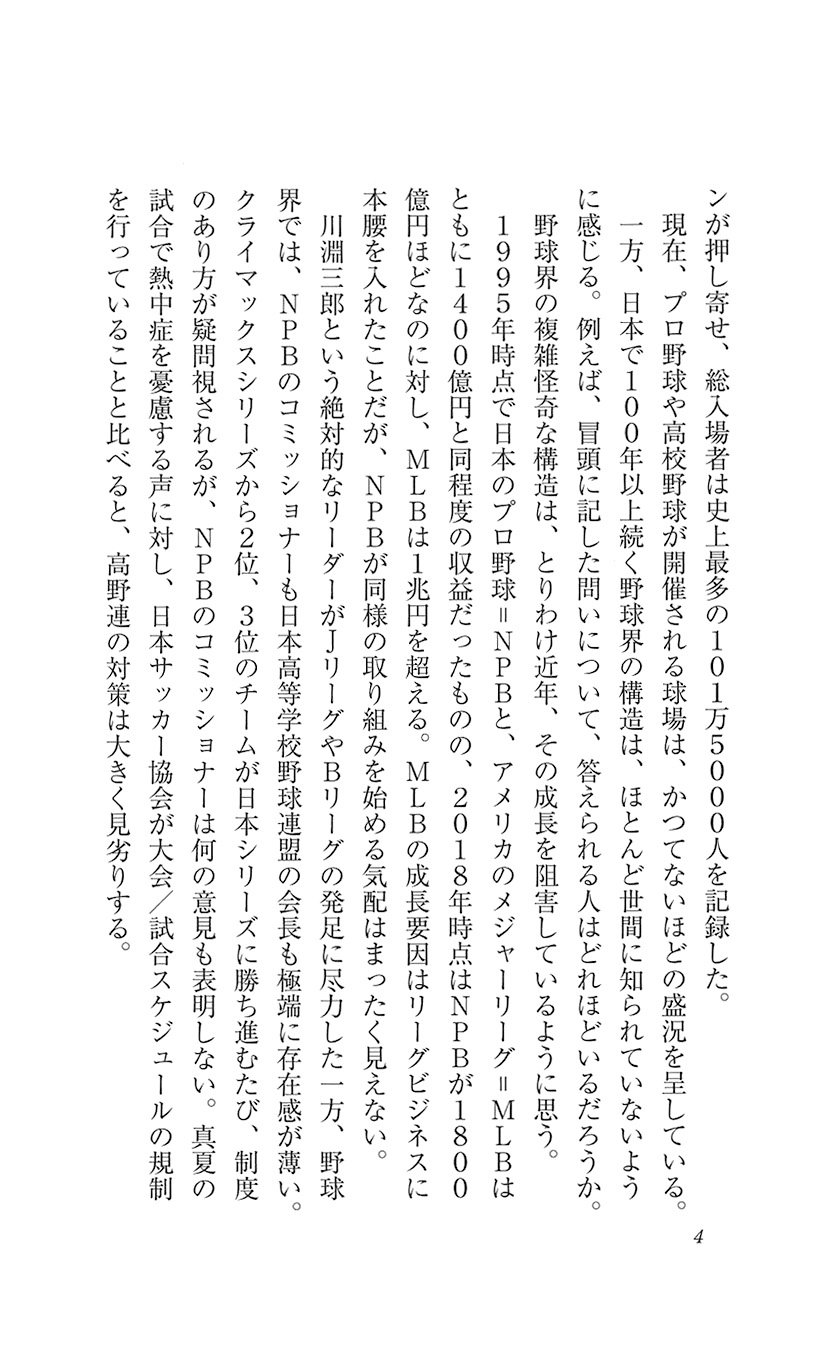 ンが押し寄せ、総入場者は史上最多の101万5000人を記録した。
　現在、プロ野球や高校野球が開催される球場は、かつてないほどの盛況を呈している。
　一方、日本で100年以上続く野球界の構造は、ほとんど世間に知られていないよう
に感じる。例えば、冒頭に記した問いについて、答えられる人はどれほどいるだろうか。
　野球界の複雑怪奇な構造は、とりわけ近年、その成長を阻害しているように思う。
　1995年時点で日本のプロ野球＝NPBと、アメリカのメジャーリーグ＝MLBは
ともに1400億円と同程度の収益だったものの、2018年時点はNPBが1800
億円ほどなのに対し、MLBは1兆円を超える。MLBの成長要因はリーグビジネスに
本腰を入れたことだが、NPBが同様の取り組みを始める気配はまったく見えない。
　川淵三郎という絶対的なリーダーがJリーグやBリーグの発足に尽力した一方、野球
界では、NPBのコミッショナーも日本高等学校野球連盟の会長も極端に存在感が薄い。
クライマックスシリーズから2位、3位のチームが日本シリーズに勝ち進むたび、制度
のあり方が疑問視されるが、NPBのコミッショナーは何の意見も表明しない。真夏の
試合で熱中症を憂慮する声に対し、日本サッカー協会が大会／試合スケジュールの規制
を行っていることと比べると、高野連の対策は大きく見劣りする。
4